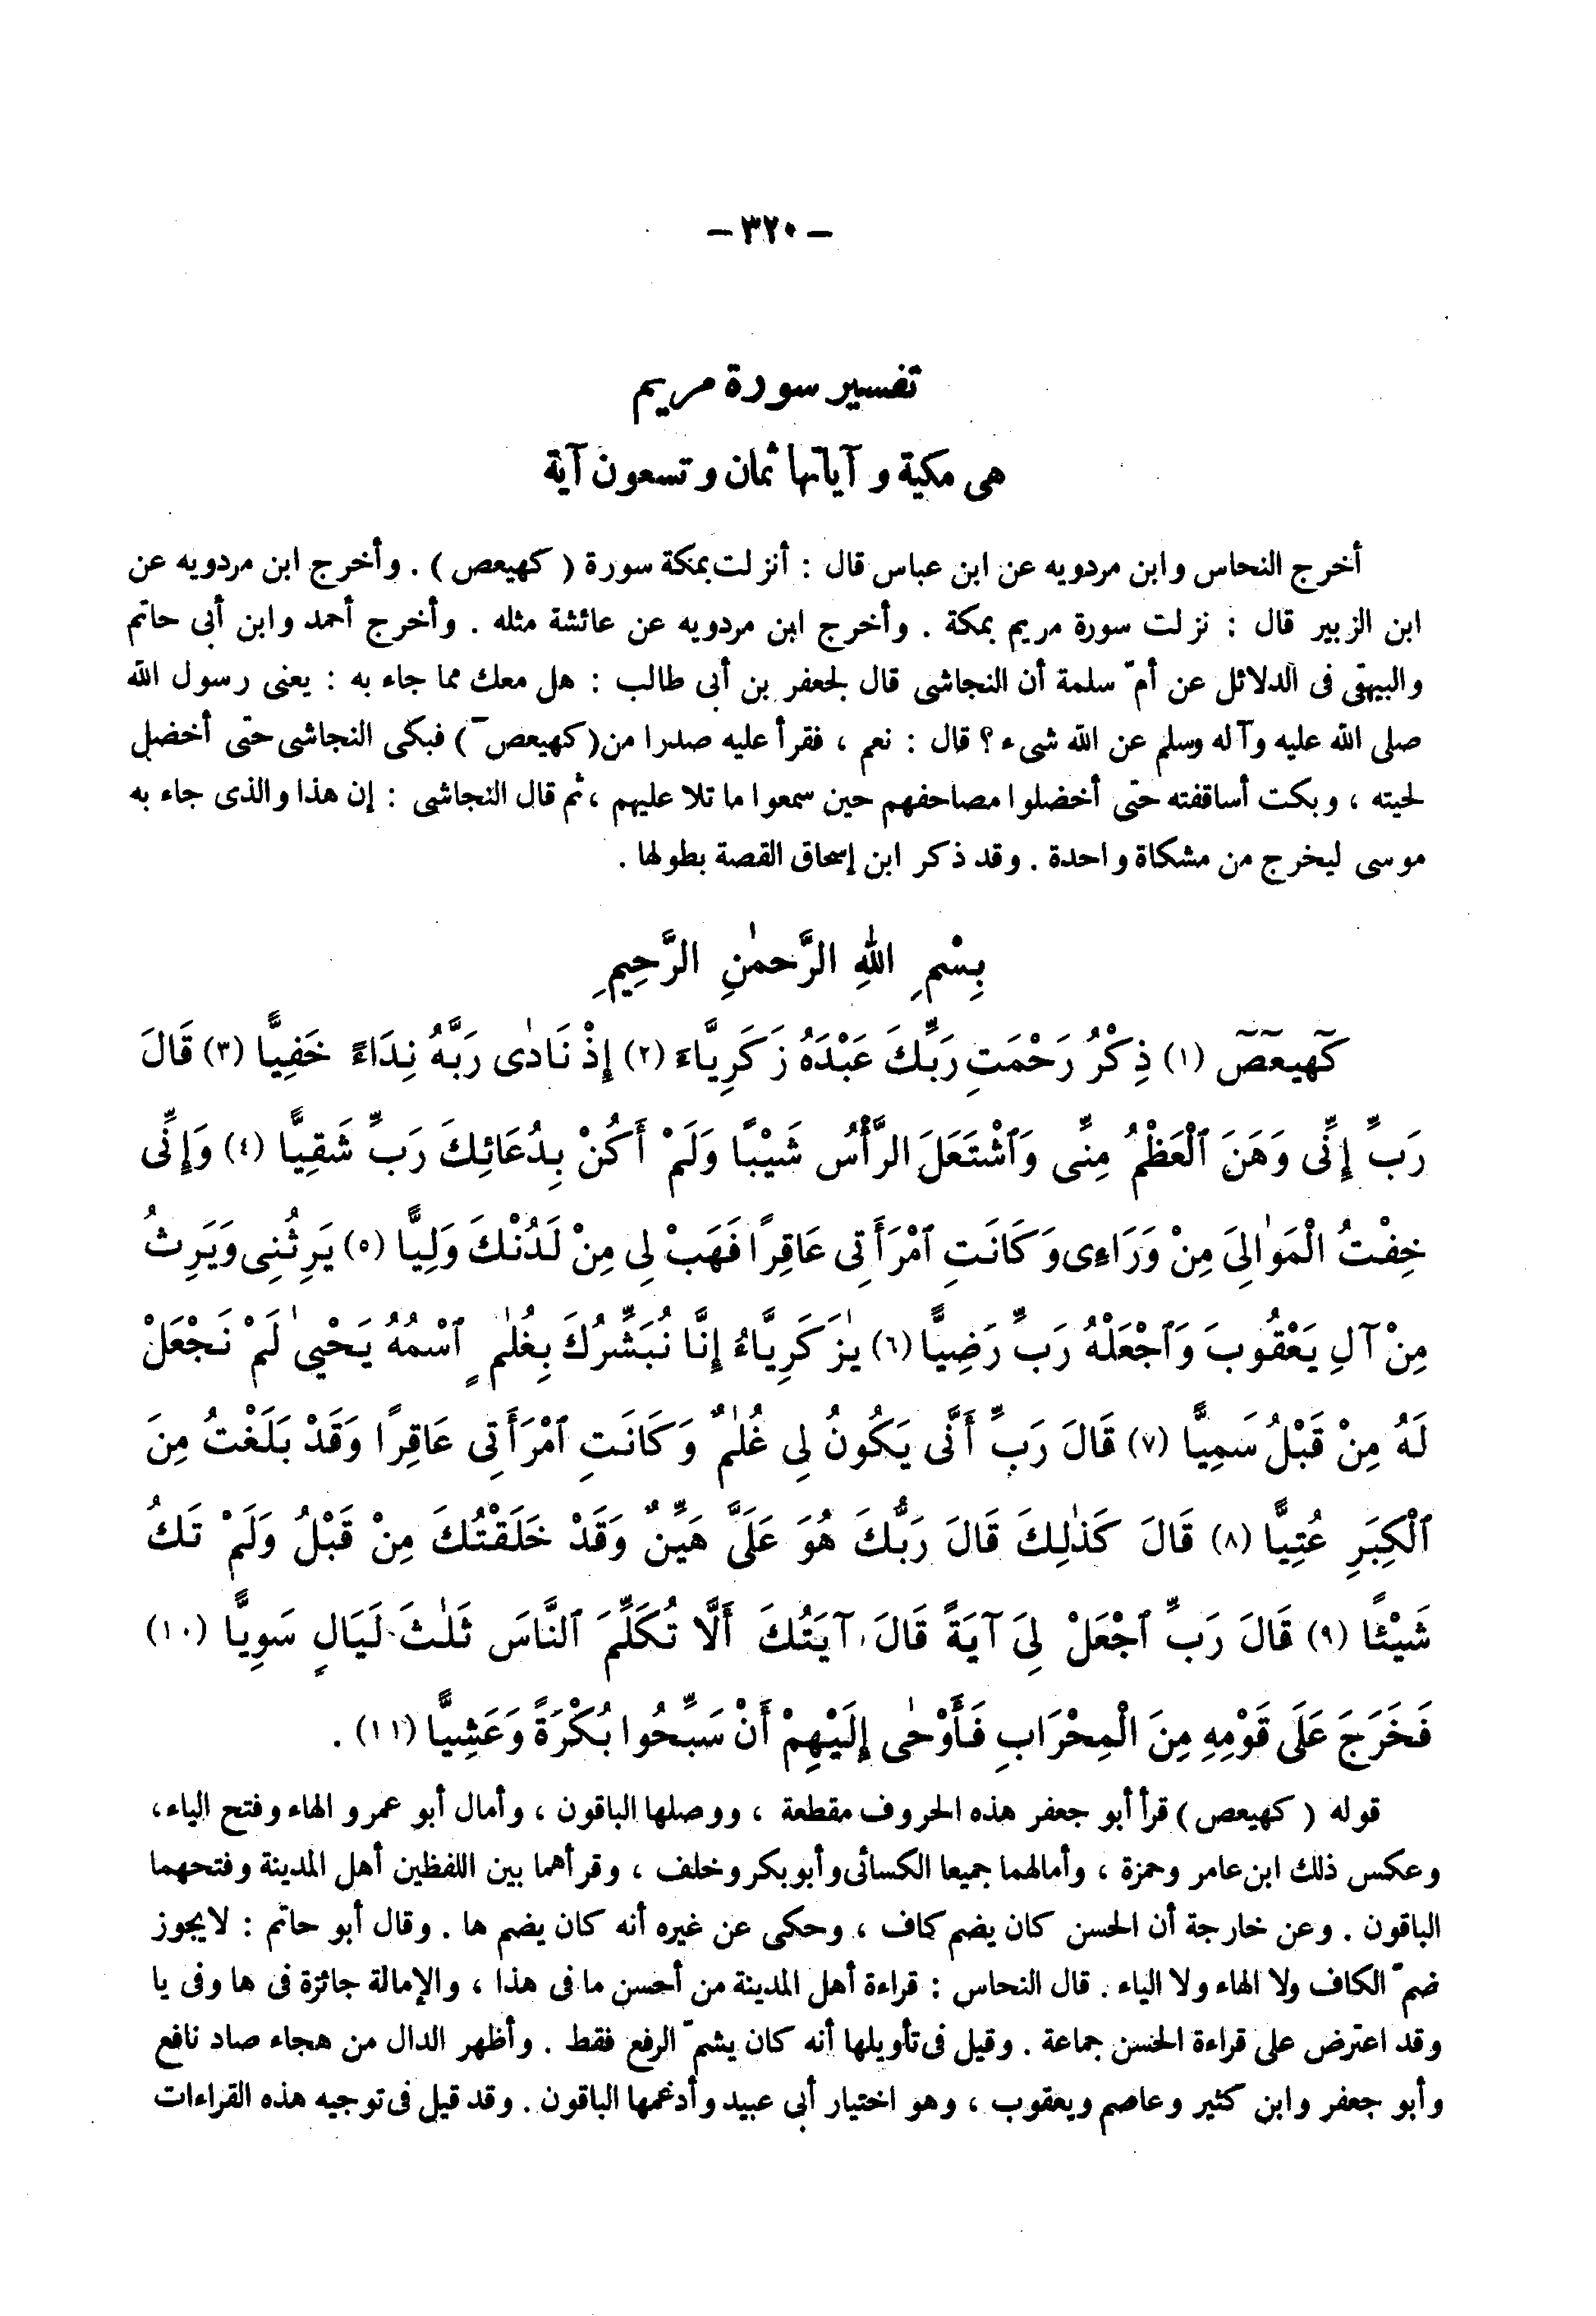 – ٣٢٠ –
تفسير سورة مريم
هى مكية وآياتها ثمان وتسعون آية
أخرج النحاس وابن مردويه عن ابن عباس قال : أنزلت بمكة سورة ( كهيعص ) . وأخرج ابن مردويه عن
ابن الزبير قال : نزلت سورة مريم بمكة . وأخرج ابن مردويه عن عائشة مثله . وأخرج أحمد وابن أبى حاتم
والبيهقى فى الدلائل عن أمّ سلمة أن النجاشى قال لجعفر بن أبى طالب : هل معك مما جاء به : يعنى رسول الله
صلى الله عليه وآله وسلم عن الله شىء ؟ قال : نعم ، فقرأ عليه صدرا من ( كهيعص ) فبكى النجاشى حتى أخضل
لحيته ، وبكت أساقفته حتى أخضلوا مصاحفهم حين سمعوا ما تلا عليهم ، ثم قال النجاشى : إن هذا والذى جاء به
موسى ليخرج من مشكاة واحدة . وقد ذكر ابن إسحاق القصة بطولها .
بِسْمِ اللهِ الرَّحمٰنِ الرَّحِيمِ
كٓهيعٓصٓ (١) ذِكْرُ رَحْمَتِ رَبِّكَ عَبْدَهُ زَكَرِيَّاءَ (٢) إِذْ نَادٰى رَبَّهُ نِدَاءً خَفِيًّا (٣) قَالَ
رَبِّ إِنِّى وَهَنَ ٱلْعَظْمُ مِنِّى وَٱشْتَعَلَ الرَّأْسُ شَيْبًا وَلَمْ أَكُنْ بِدُعَائِكَ رَبِّ شَقِيًّا (٤) وَإِنِّى
خِفْتُ الْمَوٰالِىَ مِنْ وَرَاءِى وَكَانَتِ ٱمْرَأَتِى عَاقِرًا فَهَبْ لِى مِنْ لَدُنْكَ وَلِيًّا (٥) يَرِثُنِى وَيَرِثُ
مِنْ آلِ يَعْقُوبَ وَٱجْعَلْهُ رَبِّ رَضِيًّا (٦) يٰزَكَرِيَّاءُ إِنَّا نُبَشِّرُكَ بِغُلٰمٍ ٱسْمُهُ يَحْيىٰ لَمْ نَجْعَلْ
لَهُ مِنْ قَبْلُ سَمِيًّا (٧) قَالَ رَبِّ أَنَّى يَكُونُ لِى غُلٰمٌ وَكَانَتِ ٱمْرَأَتِى عَاقِرًا وَقَدْ بَلَغْتُ مِنَ
ٱلْكِبَرِ عُتِيًّا (٨) قَالَ كَذٰلِكَ قَالَ رَبُّكَ هُوَ عَلَىَّ هَيِّنٌ وَقَدْ خَلَقْتُكَ مِنْ قَبْلُ وَلَمْ تَكُ
شَيْئًا (٩) قَالَ رَبِّ ٱجْعَلْ لِىَ آيَةً قَالَ آيَتُكَ أَلَّا تُكَلِّمَ ٱلنَّاسَ ثَلٰثَ لَيَالٍ سَوِيًّا (١٠)
فَخَرَجَ عَلَى قَوْمِهِ مِنَ الْمِحْرَابِ فَأَوْحٰى إِلَيْهِمْ أَنْ سَبِّحُوا بُكْرَةً وَعَشِيًّا (١١) .
قوله ( كهيعص ) قرأ أبو جعفر هذه الحروف مقطعة ، ووصلها الباقون ، وأمال أبو عمرو الهاء وفتح الياء ،
وعكس ذلك ابن عامر وحمزة ، وأمالهما جميعا الكسائى وأبو بكر وخلف ، وقرأهما بين اللفظين أهل المدينة وفتحهما
الباقون . وعن خارجة أن الحسن كان يضم كاف ، وحكى عن غيره أنه كان يضم ها . وقال أبو حاتم : لا يجوز
ضمّ الكاف ولا الهاء ولا الياء . قال النحاس : قراءة أهل المدينة من أحسن ما فى هذا ، والإمالة جائزة فى ها وفى يا
وقد اعترض على قراءة الحسن جماعة . وقيل فى تأويلها أنه كان يشمّ الرفع فقط . وأظهر الدال من هجاء صاد نافع
وأبو جعفر وابن كثير وعاصم ويعقوب ، وهو اختيار أبى عبيد وأدغمها الباقون . وقد قيل فى توجيه هذه القراءات